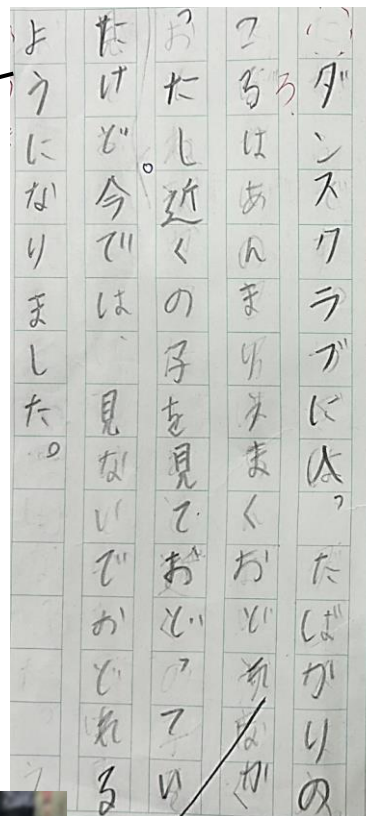 ダンスクラブに入ったばがりの
こるはあんまりうまくおどれなか
ったし近くの子を見ておどってい
たけど今では見ないでおどれる
ようになりました。